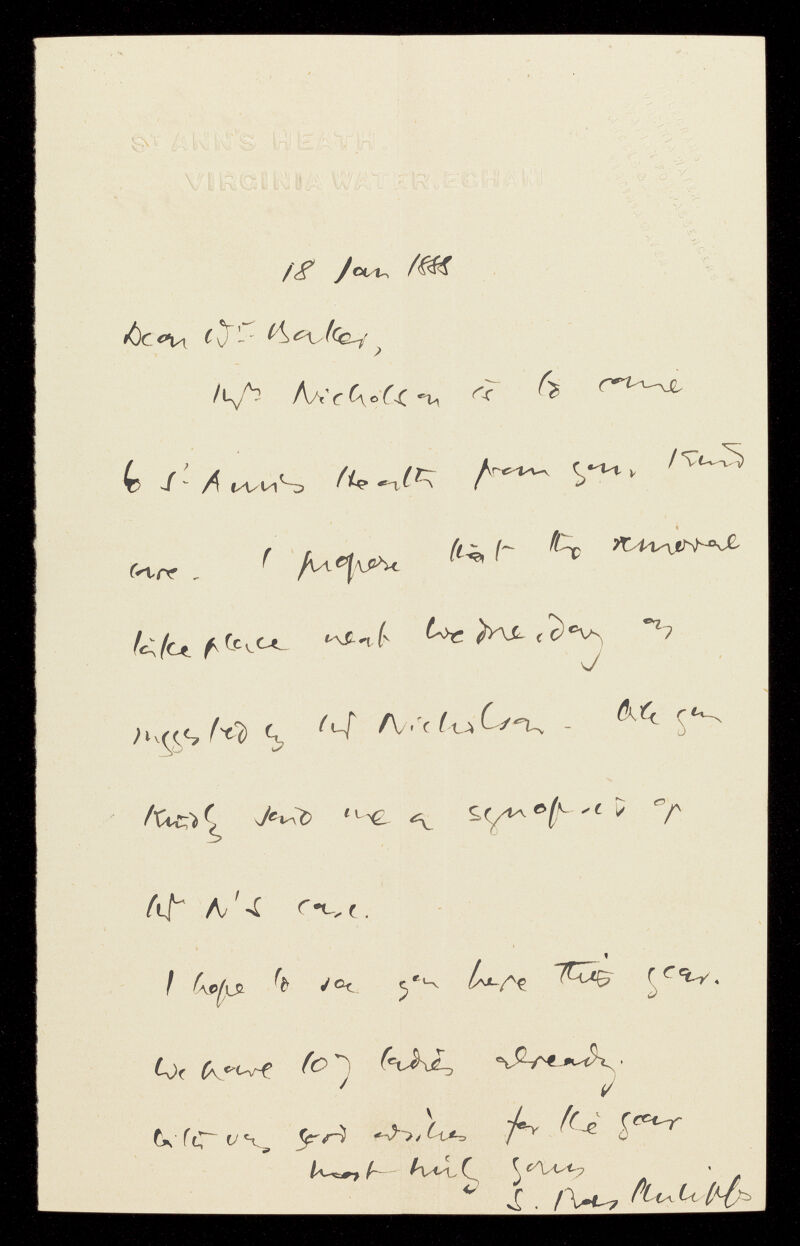 ST ANN'S HEATH.
VIRGINIA WATER, EGHAM
VIRGINIA WATER
PASSENGERS
VIRGINIA WATER
18 Jan 1888
Dear Dr. Baker,
Mrs Nicholson is to come
to St Ann's Heath from your kind
care. I propose that the removal
take place next Wednesday as
suggested by Mr Nicholson. Will you
kindly send me a synopsis of
Mrs N's case.
I hope to see you here this year.
We have 107 ladies already.
With very good wishes for the year
most truly yours
S. Rees Philipps